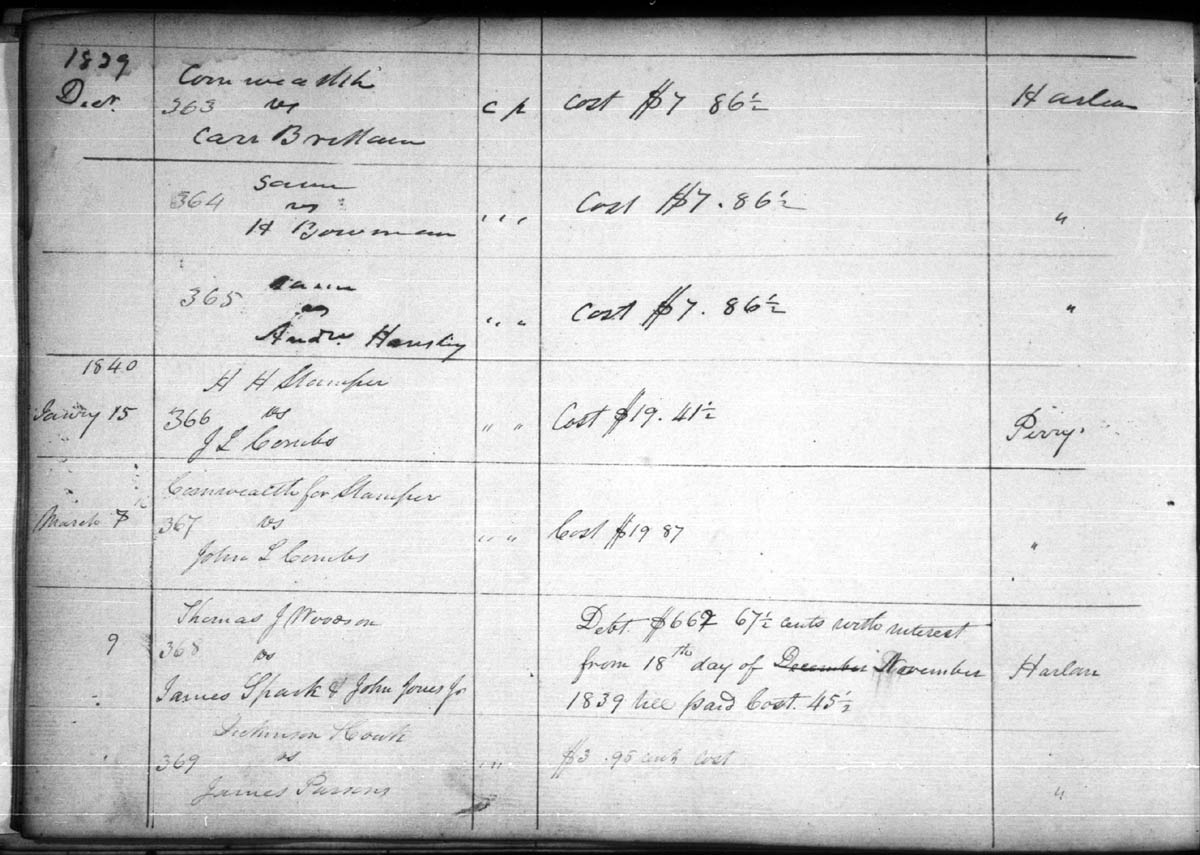 1839
Decr.
Comwealth
363 vs
Carr Brittain
c p
Cost $7 86½
Harlan
Same
364 vs
H Bowman
" "
Cost $7. 86½
"
Same
365 vs
Andw. Hensley
" "
Cost $7. 86½
"
1840
H H Stamper
Jaury 15
366 vs
J L Combs
" "
Cost $19. 41½
Perry.
Comwealth for Stamper
March 7
367 vs
John L Combs
" "
Cost $19 87
"
Thomas J Woodson
9
368 vs
James Spark & John Jones Jr
Debt. $667 67½ cents with interest
from 18th day of December November
1839 till paid Cost. 45½
Harlan
Dickinson
369 vs
James Parsons
" "
$3 .95 cents cost
"